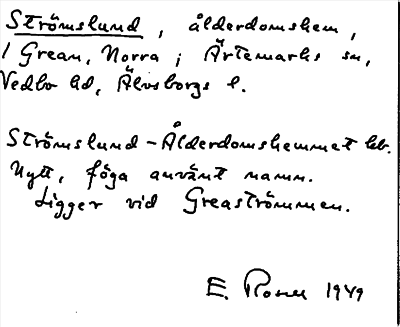 Strömslund, ålderdomshem,
1 Grean, Norra; Ärtemarks sn,
Vedbo hd, Älvsborgs l.
Strömslund - Ålderdomshemmet
Nytt, föga använt namn.
Ligger vid Greaströmmen.
E. Rosell 1949